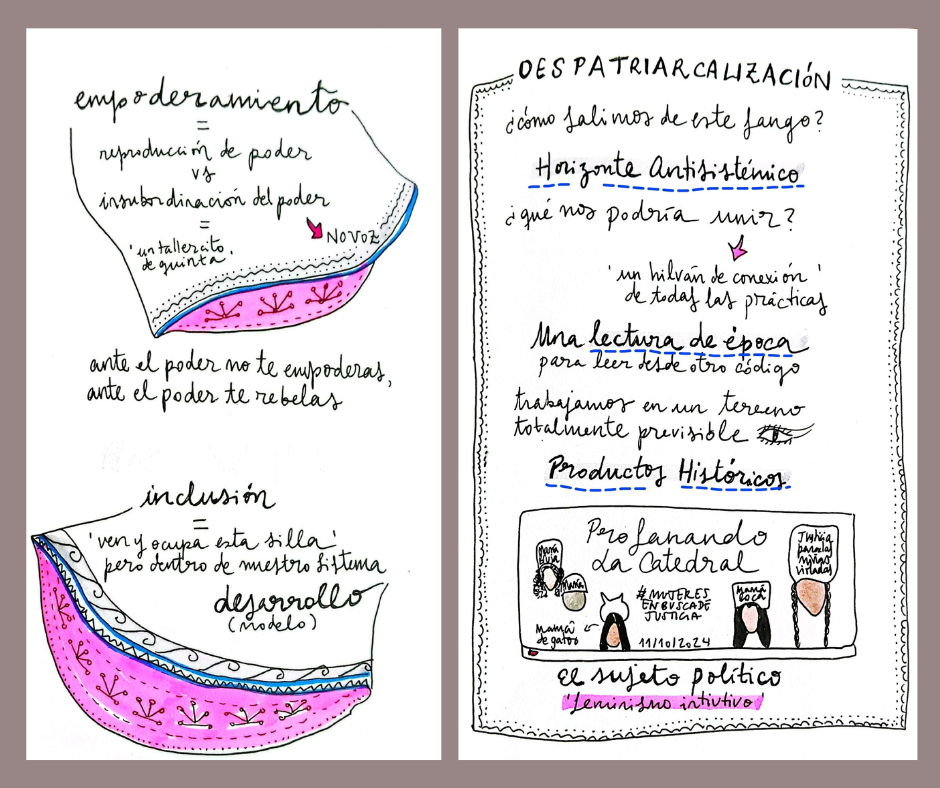 empoderamiento
=
reproducción de poder
vs
insubordinación del poder
=
'un tallercito
de quinta'
NO VOZ
ante el poder no te empoderas,
ante el poder te rebelas
inclusión
=
'ven y ocupa esta silla'
pero dentro de nuestro sistema
desarrollo
(modelo)
DESPATRIARCALIZACIÓN
¿cómo salimos de este fango?
Horizonte Antisistémico
¿qué nos podría unir?
'un hilván de conexión'
de todas las prácticas
Una lectura de época
para leer desde otro código
trabajamos en un terreno
totalmente previsible
Productos Históricos
Profanando
La Catedral
Justicia
para las
niñas
violadas
María
María
#MUJERES
EN BUSCA DE
JUSTICIA
Mamá
Loca
Mamá
de gatos
11/10/2024
el sujeto político
'feminismo intuitivo'